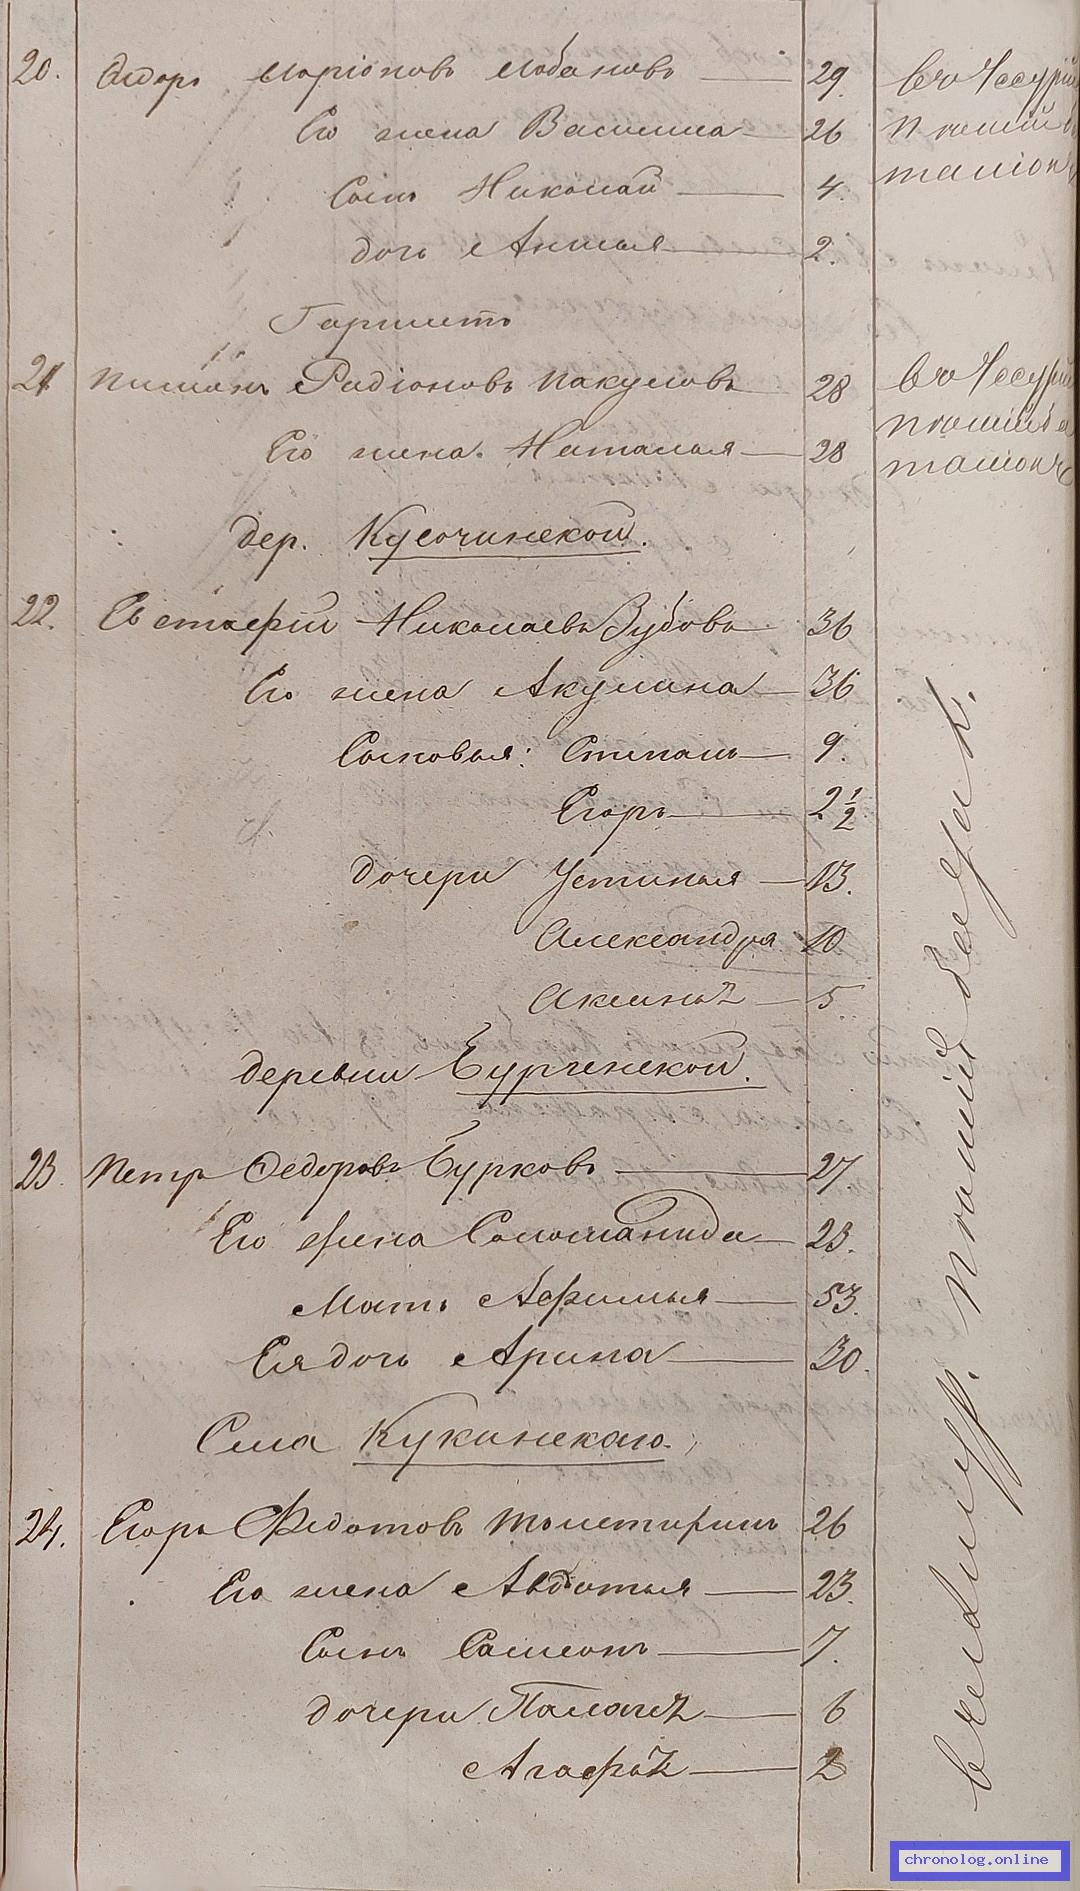 20. Федоръ Ларіоновъ Лобановъ 29. во Уссурій
Его жена Василиса 26 пѣшій ба
Сынъ Николай 4. таліонъ
дочь Анисья 2.
21 Пименъ Радіоновъ Пакуловъ 28 во Уссурій
пѣшій ба
Его жена Наталья 28 таліонъ
дер. Кусочинской.
22. Евстафій Николаевъ Зубовъ 36
Его жена Акулина 36
Сыновья: Степанъ 9.
Егоръ 2 1/2
дочери Устинья 13.
Александра 10
Аксинья 5.
деревни
23. Петръ Федоровъ Бурковъ 27.
Его жена Соломанида 23.
Мать Афимья 53.
Ея дочь Арина 30.
Села Кукинскаго.
24. Егоръ Федотовъ 26
Его жена Авдотья 23.
Сынъ 7.
дочери Палагѣя 6
Агафья 2
пѣшій
chronolog.online